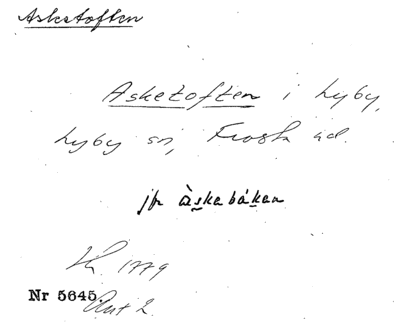 Asketoften
Asketoften i Lyby,
Lyby sn, Frosta hd.
jfr Àskabákan
LK 1779
Nr 5645. Akt 2.